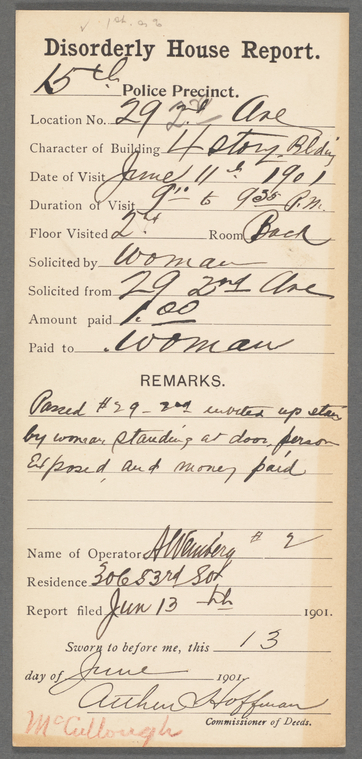 Disorderly House Report.
15th Police Precinct.
Location No. 29 2nd Ave
Character of Building 4 story Bldig
Date of Visit June 11th 1901
Duration of Visit 9 to 9 35 P.M.
Floor Visited 2nd Room Back
Solicited by Woman
Solicited from 29 2nd Ave
Amount paid 1.00
Paid to Woman
REMARKS.
Passed #29-2nd invited up stairs
by woman standing at door, person
Exposed and money paid
Name of Operator # 2
Residence 306 53rd
Report filed Jun 13 th 1901.
Sworn to before me, this 13
day of June 1901
Arthur Hoffman
Commissioner of Deeds.
McCullough